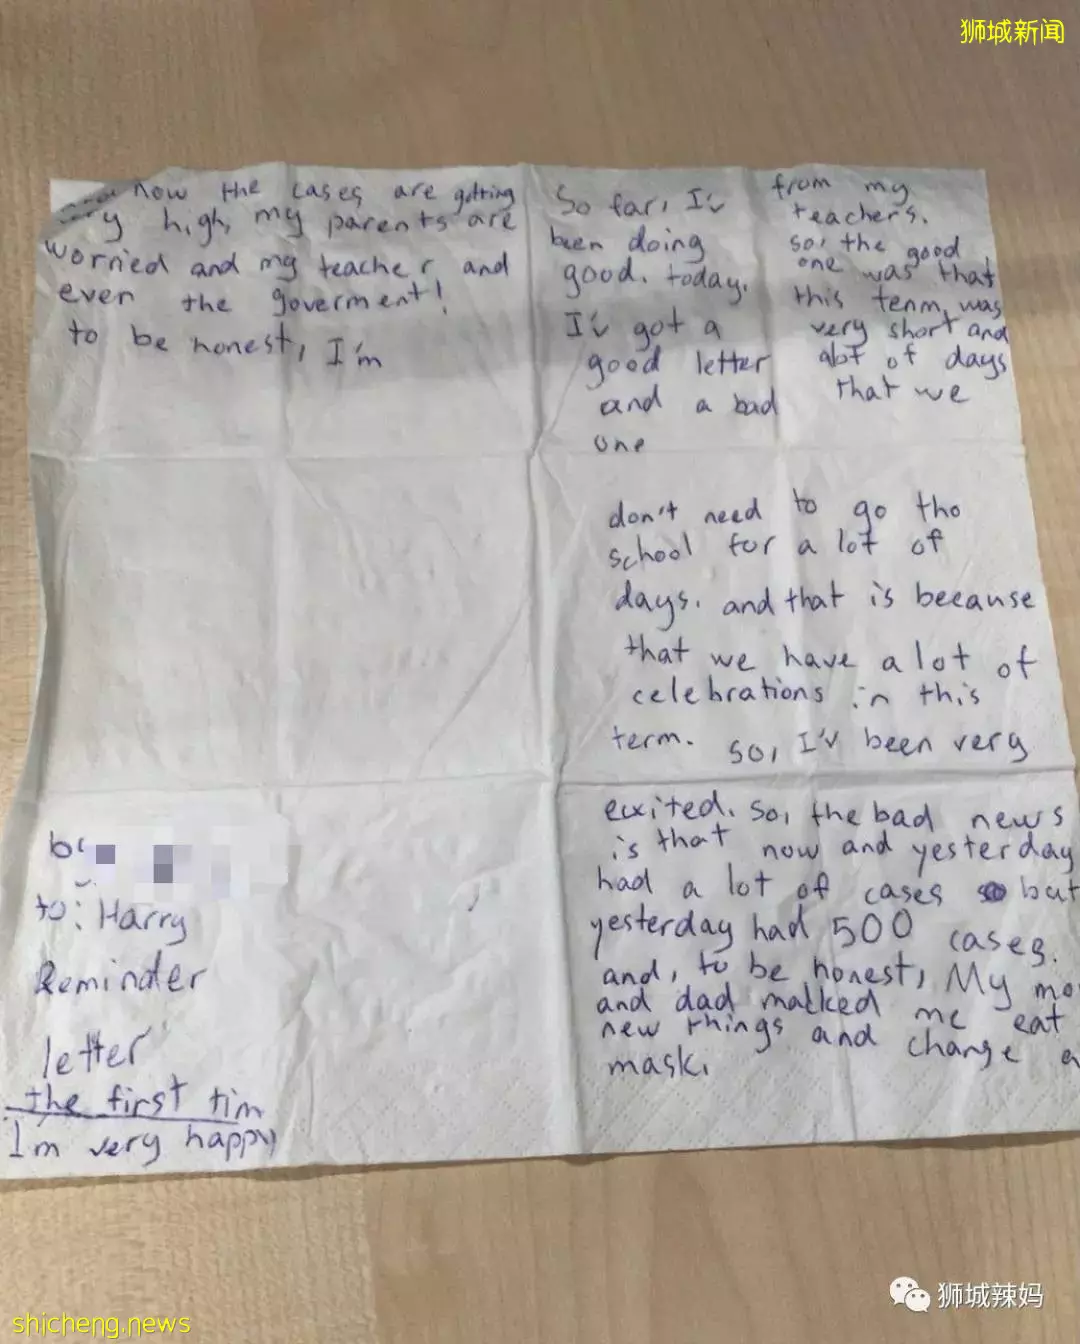 狮城新闻
now the cases are getting
high, my parents are
worried and my teacher and
even the goverment!
to be honest, I'm
So far, I'v
been doing
good. today.
I'v got a
good letter
and a bad
one
from my
teachers.
so, the good
one was that
this term, was
very short and
alot of days
that we
don't need to go tho
school for a lot of
days. and that is because
that we have a lot of
celebrations in this
term. so, I'v been very
exited. So, the bad news
is that now and yesterday
had a lot of cases but
yesterday had 500 cases.
and, to be honest, My
and dad matked me eat
new things and change
mask.
to: Harry
Reminder
letter
the first tim
I'm very happy
狮城辣妈
shicheng.news